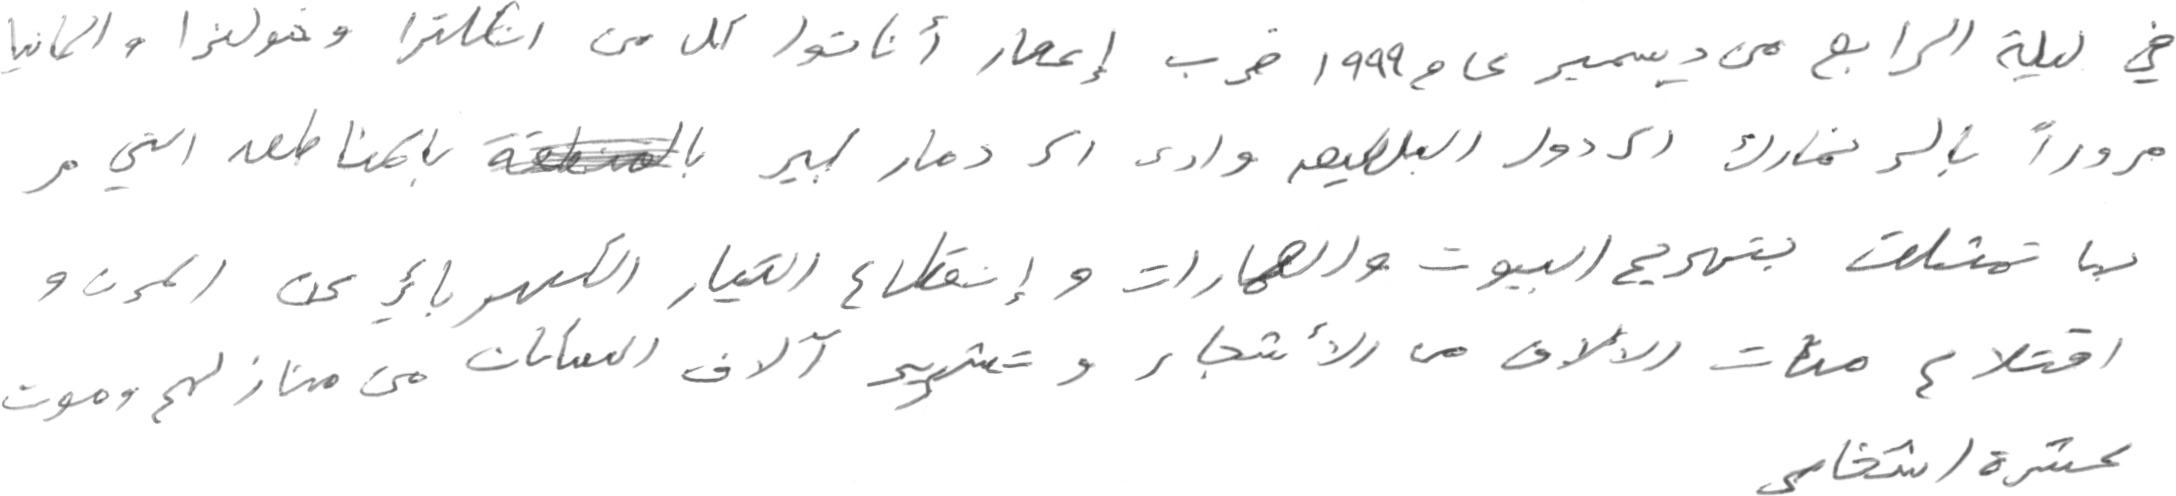 في ليلة الرابع من ديسمبر عام ١٩٩٩ ضرب إعصار أناتوا كل من انكلترا وهولندا والمانيا
مروراً بالدنمارك الى دول البلطيق وادى الى دمار كبير بالمناطق التي مر
بها تمثلت بتهديم البيوت والعمارات و إنقطاع التيار الكهربائي عن المدن و
اقتلاع مئات الالاف من الأشجار و تشريد آلاف السكان من منازلهم وموت
عشرة اشخاص